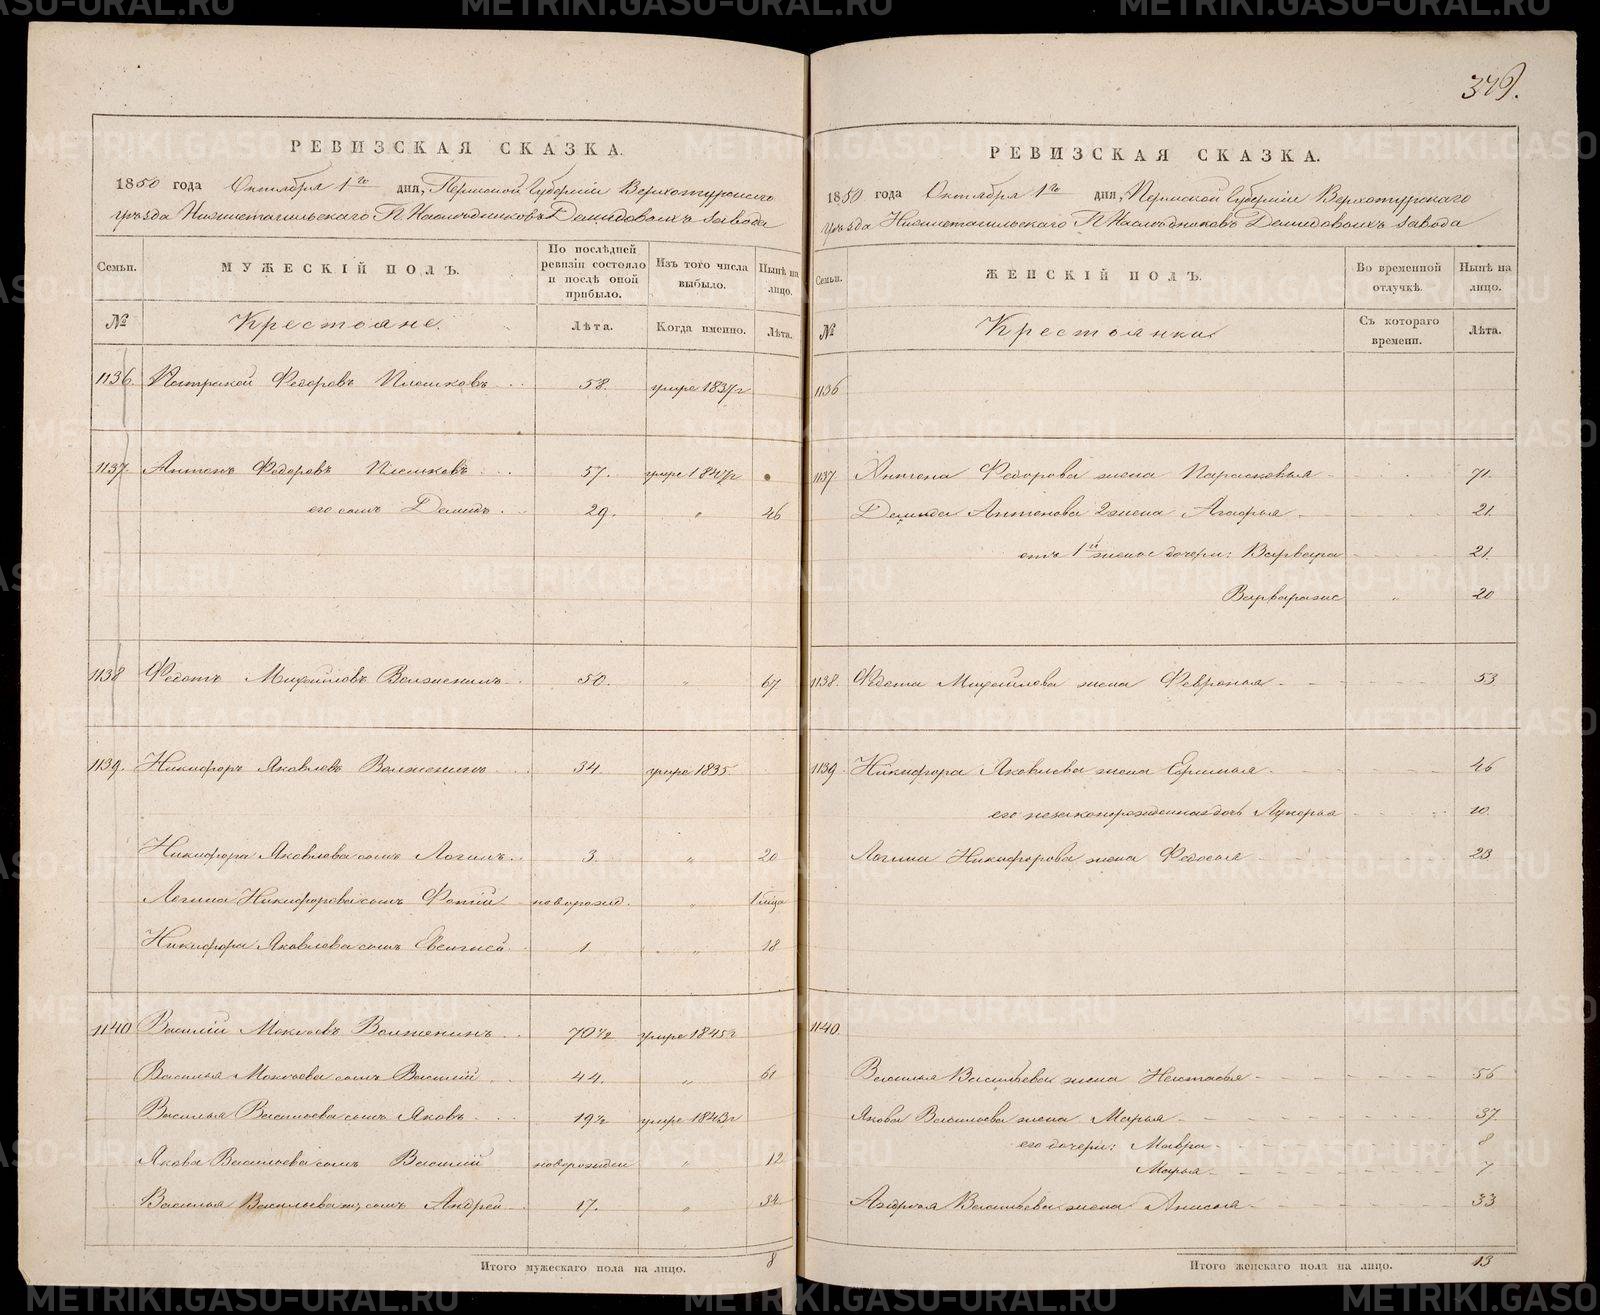 379.
РЕВИЗСКАЯ СКАЗКА.
1850 года Октября 1го дня, Пермской Губернии Верхотурскаго
уѣзда Нижнетагильскаго Г.Г. Наслѣдниковъ Демидовыхъ завода
Семьи. МУЖЕСКІЙ ПОЛЪ. По послѣдней ревизіи состояло и послѣ оной прибыло. Изъ того числа выбыло. Нынѣ на лицо.
№ Крестьяне. Лѣта. Когда именно. Лѣта.
1136 Федоровъ Плешковъ 58. умре 1837г
1137. Антонъ Федоровъ Плешковъ 57. умре 1847г
его сынъ Демидъ 29. " 46
1138 Федотъ Михайловъ Волженинъ 50. " 67
1139. Никифоръ Яковлевъ Волженинъ 34. умре 1835.
Никифора Яковлева сынъ Логинъ 3. " 20
Логина Никифорова сынъ Фотій новорожд. "
Никифора Яковлева сынъ Евсигней 1. " 18
1140 Василій Мокеевъ Волженинъ 70½ умре 1845г
Василья Мокеева сынъ Василій 44. " 61
Василья Васильева сынъ Яковъ 19½ умре 1843г
Якова Васильева сынъ Василій новорожден " 12
Василья Васильева сынъ Андрей 17. " 34
Итого мужескаго пола на лицо. 8
РЕВИЗСКАЯ СКАЗКА.
1850 года Октября 1го дня, Пермской Губерніи Верхотурскаго
уѣзда Нижнетагильскаго Г.Г. Наслѣдниковъ Демидовыхъ завода
Семьи. ЖЕНСКІЙ ПОЛЪ. Во временной отлучкѣ. Нынѣ на лицо.
№ Крестьянки. Съ котораго времени. Лѣта.
1136
1137. Антона Федорова жена Парасковья 71.
Демида Антонова 2 жена Агафья 21.
отъ 1й жены дочери: Варвара 21.
Варвара же " 20
1138. Федота Михайлова жена Февронья 53
1139 Никифора Яковлева жена 46
его незаконорожденная дочь Лукерья 10.
Логина Никифорова жена Федосья 23
1140.
Василья Васильева жена Настасья 56
Якова Васильева жена Марья 37.
его дочери: Мавра 8
Марья 7
Андрея Васильева жена Анисья 33
Итого женскаго пола на лицо. 13
METRIKI.GASO-URAL.RU